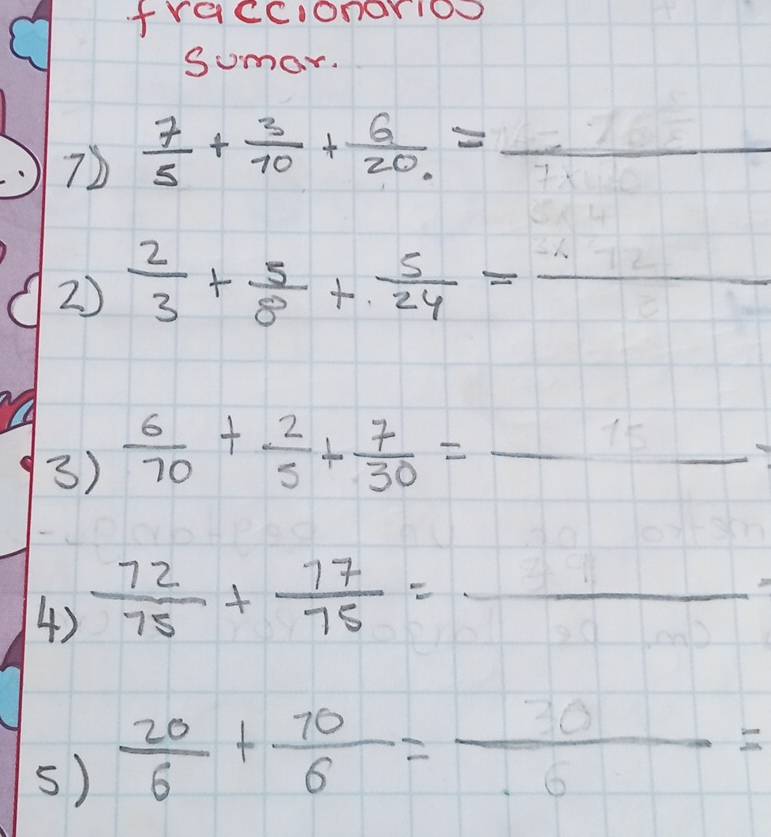 fraccionarios
Sumar.
1) 7/5 + 3/10 + 6/20. =
2) 2/3 + 5/8 + 5/24 =
3) 6/10 + 2/5 + 7/30 = 15
4) 12/15 + 17/15 =
5) 20/6 + 10/6 = 30/6 =